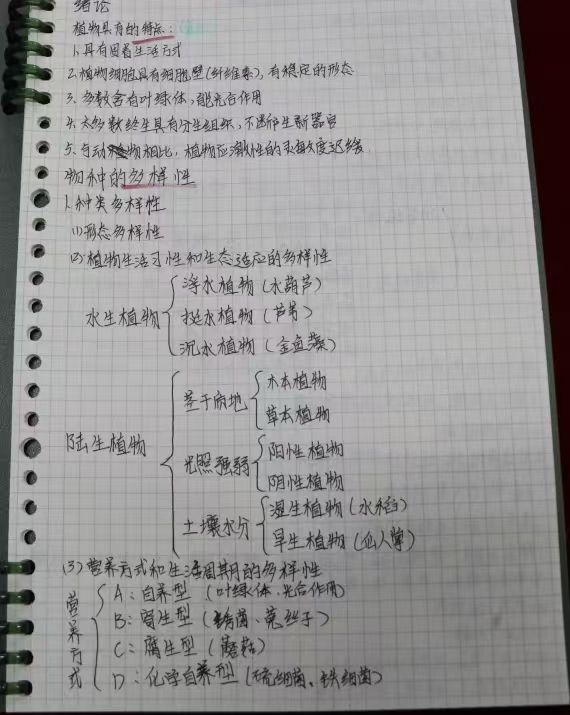 绪论
植物具有的特点:
1.具有固着生活方式
2.植物细胞具有细胞壁(纤维素),有稳定的形态
3.多数含有叶绿体,能光合作用
4.大多数终生具有分生组织,不断产生新器官
5.与动物相比,植物应激性的灵敏度迟缓
物种的多样性
1.种类多样性
(1)形态多样性
(2)植物生活习性和生态适应的多样性
水生植物
浮水植物(水葫芦)
挺水植物(芦苇)
沉水植物(金鱼藻)
陆生植物
茎干质地
木本植物
草本植物
光照强弱
阳性植物
阴性植物
土壤水分
湿生植物(水稻)
旱生植物(仙人掌)
(3)营养方式和生活周期的多样性
营养方式
A:自养型(叶绿体、光合作用)
B:寄生型(锈菌、菟丝子)
C:腐生型(蘑菇)
D:化学自养型(硫细菌、铁细菌)